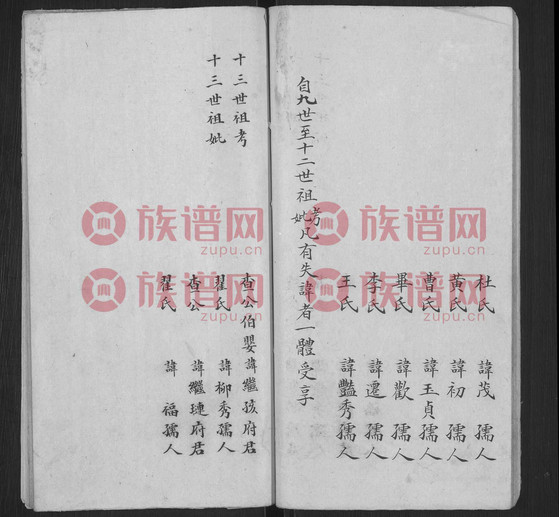 杜氏 諱茂 孺人
黃氏 諱初 孺人
曹氏 諱玉貞孺人
畢氏 諱歡 孺人
李氏 諱還 孺人
王氏 諱豔秀孺人
自九世至十二世祖考妣凡有失諱者一體受享
十三世祖考
十三世祖妣
查公伯嬰諱繼孩府君
翟氏 諱柳秀孺人
查公 諱繼璉府君
翟氏 諱福孺人
族谱网
zupu.cn
族谱网
zupu.cn
族谱网
zupu.cn
族谱网
zupu.cn